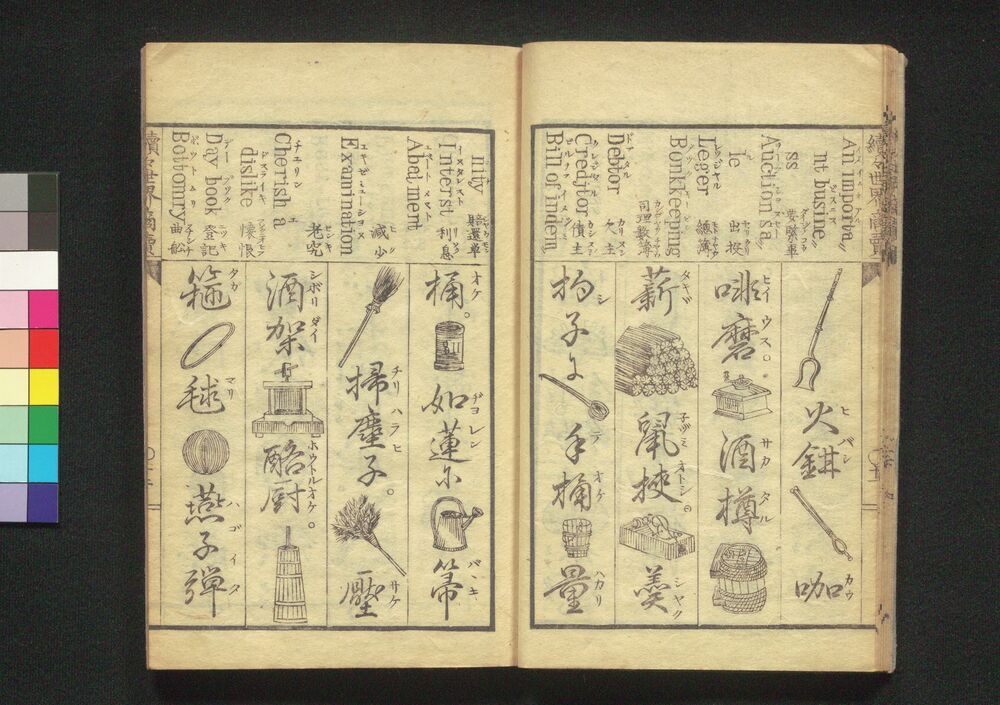 An importa〃
nt busine〃
ss 要緊事
Auction sa〃
le 出投
Leger 總簿
Bonkkeeping 司理数簿
Debtor 欠主
Creditor 債主
Bill of indem
火鉗 ヒバシ
咖 カウ
啡磨 ヒイウス。
酒樽 サカタル
薪 タキヾ
鼠挾 子ヅミオトシ。
羹 シヤク
杓子 シ
手桶 テオケ
量 ハカリ
nity 賠還單
Interst 利息
Abatment 減少
Examination 老究
Cherish a
dislike 懐恨
Day book 登記
Bottomry 曲船
桶。 オケ
如蓮尓 ヂヨレン
箒
掃塵子。 チリハラヒ
サケ
酒架 シボリダイ
酪厨 ホウトルオケ。
箍 タガ
毬 マリ
燕子弾 ハゴイタ